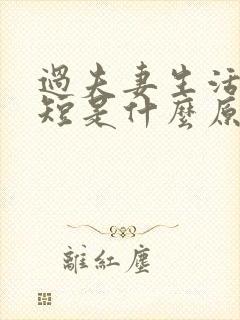 過夫妻生活
短是什麼原
離紅塵